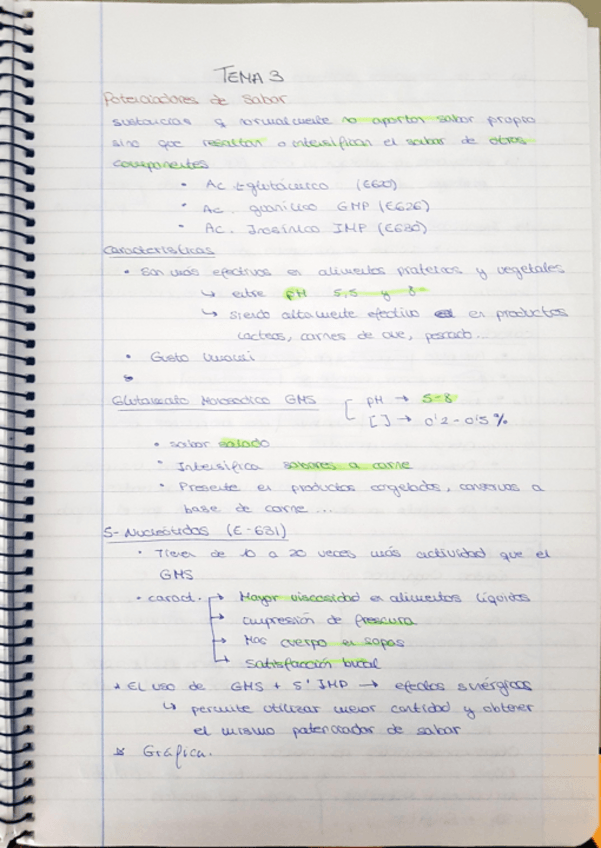 TEMA 3
Potenciadores de sabor
sustancias q normalmente no aportan sabor propio
sino que resaltan o intensifican el sabor de otros
componentes
• Ac L-glutámico (E620)
• Ac. guanílico GMP (E626)
• Ac. Inosínico IMP (E630)
Características
• Son más efectivos en alimentos proteinas y vegetales
↳ entre pH 5,5 y 8
↳ siendo altamente efectivo en productos
lacteos, carnes de ave, pescado..
• Gusto Umami
Glutamato Monosódico GMS [ pH → 5-8
[ ] → 0'2-0'5%
• sabor salado
• Intensifica sabores a carne
• Presente en productos congelados, conservas a
base de carne ...
5-Nucleótidos (E-631)
• Tienen de 10 a 20 veces más actividad que el
GMS
• caract. → Mayor viscosidad en alimentos líquidos
→ impresión de frescura
→ Mas cuerpo en sopas
→ satisfacción bucal
* El uso de GMS + 5' IMP → efectos sinérgicos
↳ permite utilizar menor cantidad y obtener
el mismo potenciador de sabor
* Gráfica.